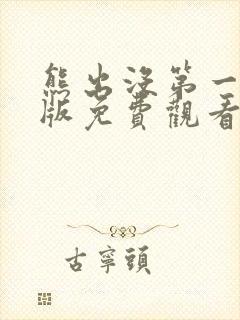 熊出沒第一
版免費觀看
古寧頭